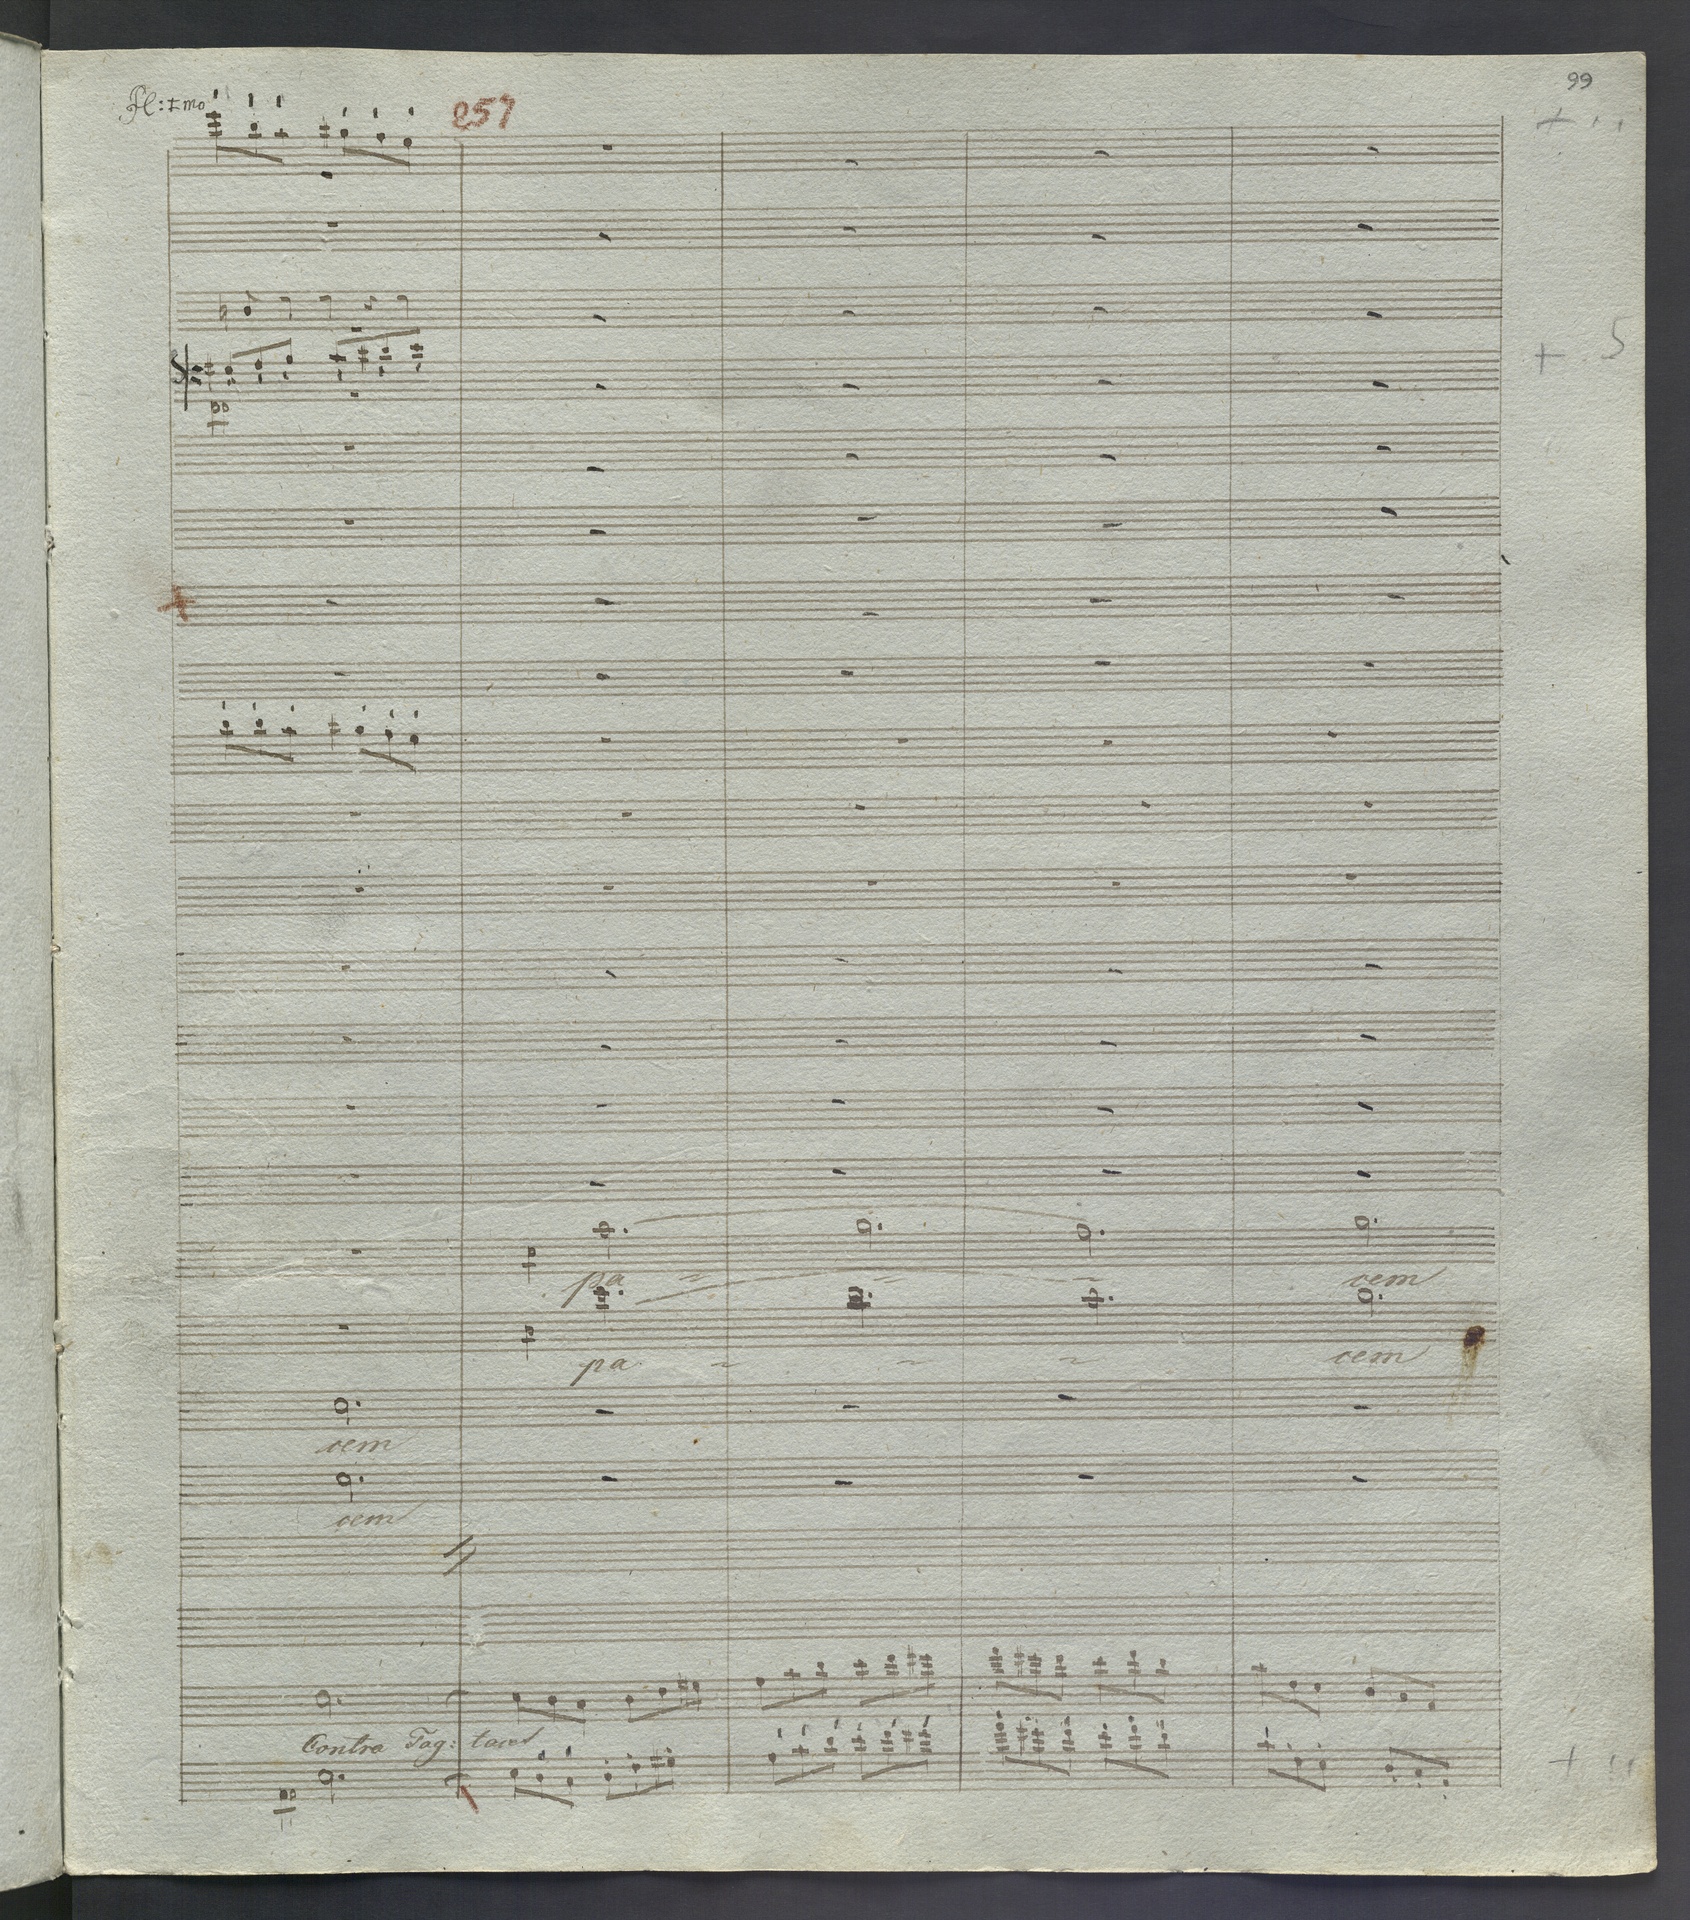 99
Fl: Imo
257
+
+ 5
pa = = = cem
pa = = = cem
cem
cem
Contra Fag: tacet
+